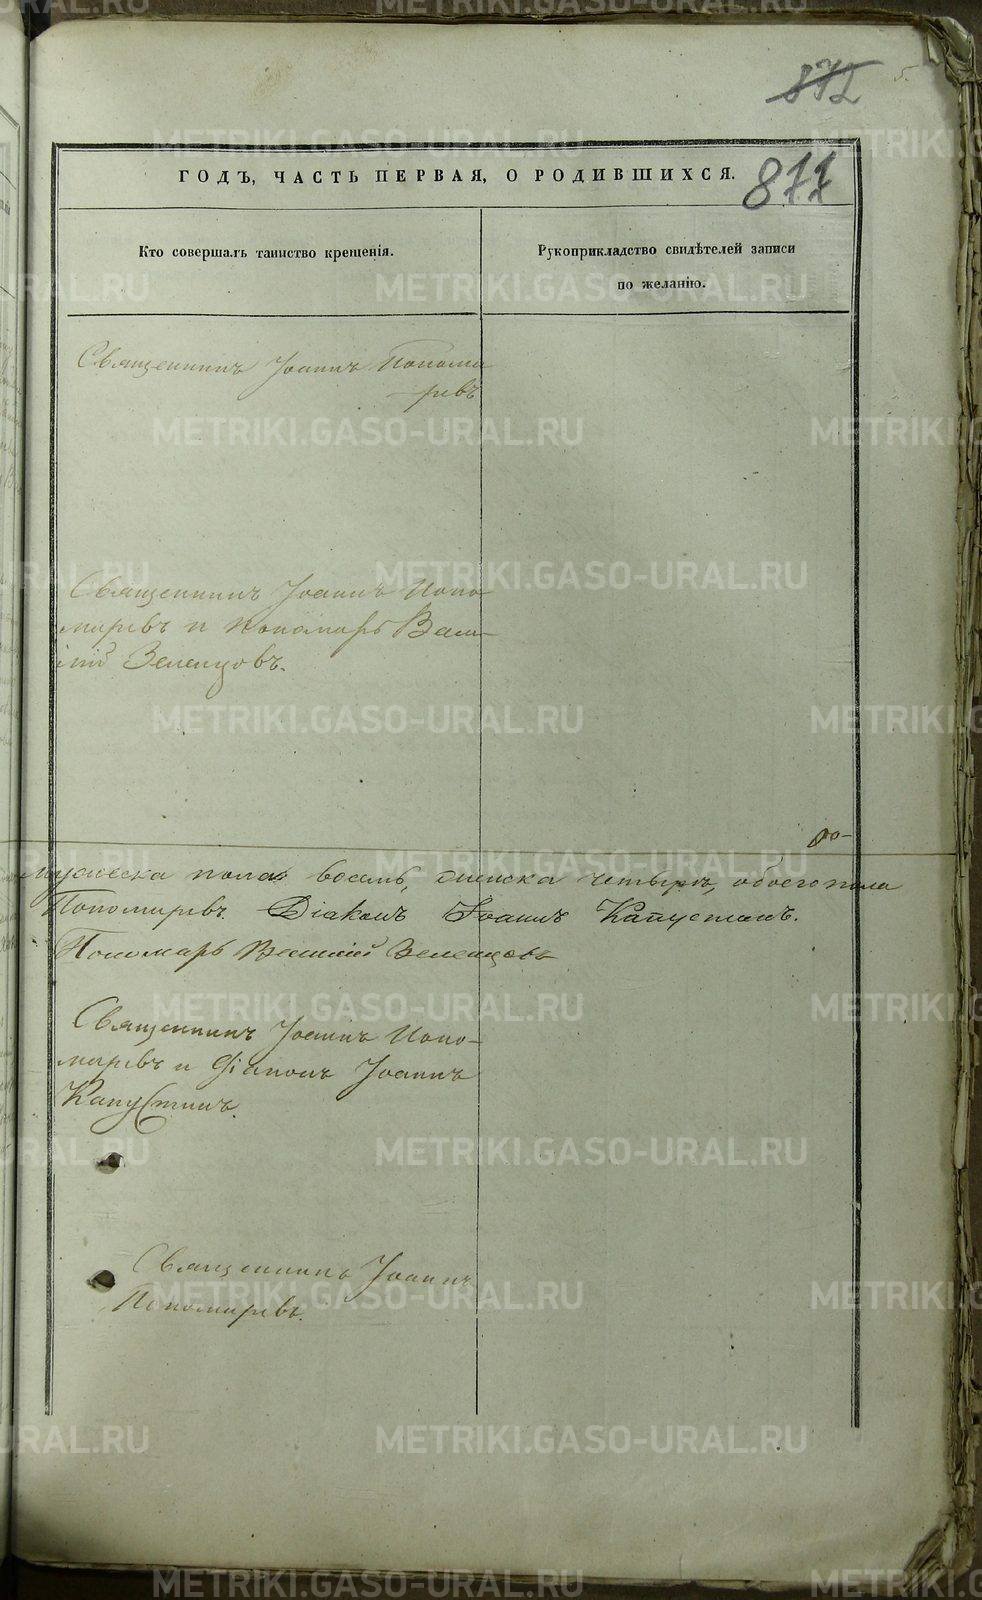 872
5.
877
ГОДЪ, ЧАСТЬ ПЕРВАЯ, О РОДИВШИХСЯ.
Кто совершалъ таинство крещенія.
Рукоприкладство свидѣтелей записи
по желанію.
Священникъ Іоаннъ Попома
ревъ
Священникъ Іоаннъ Попо-
маревъ и Пономарь Васи-
лій Зеленцовъ.
мужеска пола восемь, женска четыре, обоего пола
Пономаревъ. Діаконъ Іоаннъ Капустинъ.
Пономарь Василій Зеленцовъ
Священникъ Іоаннъ Поно-
маревъ и Діаконъ Іоаннъ
Капустинъ.
Священникъ Іоаннъ
Пономаревъ.
METRIKI.GASO-URAL.RU